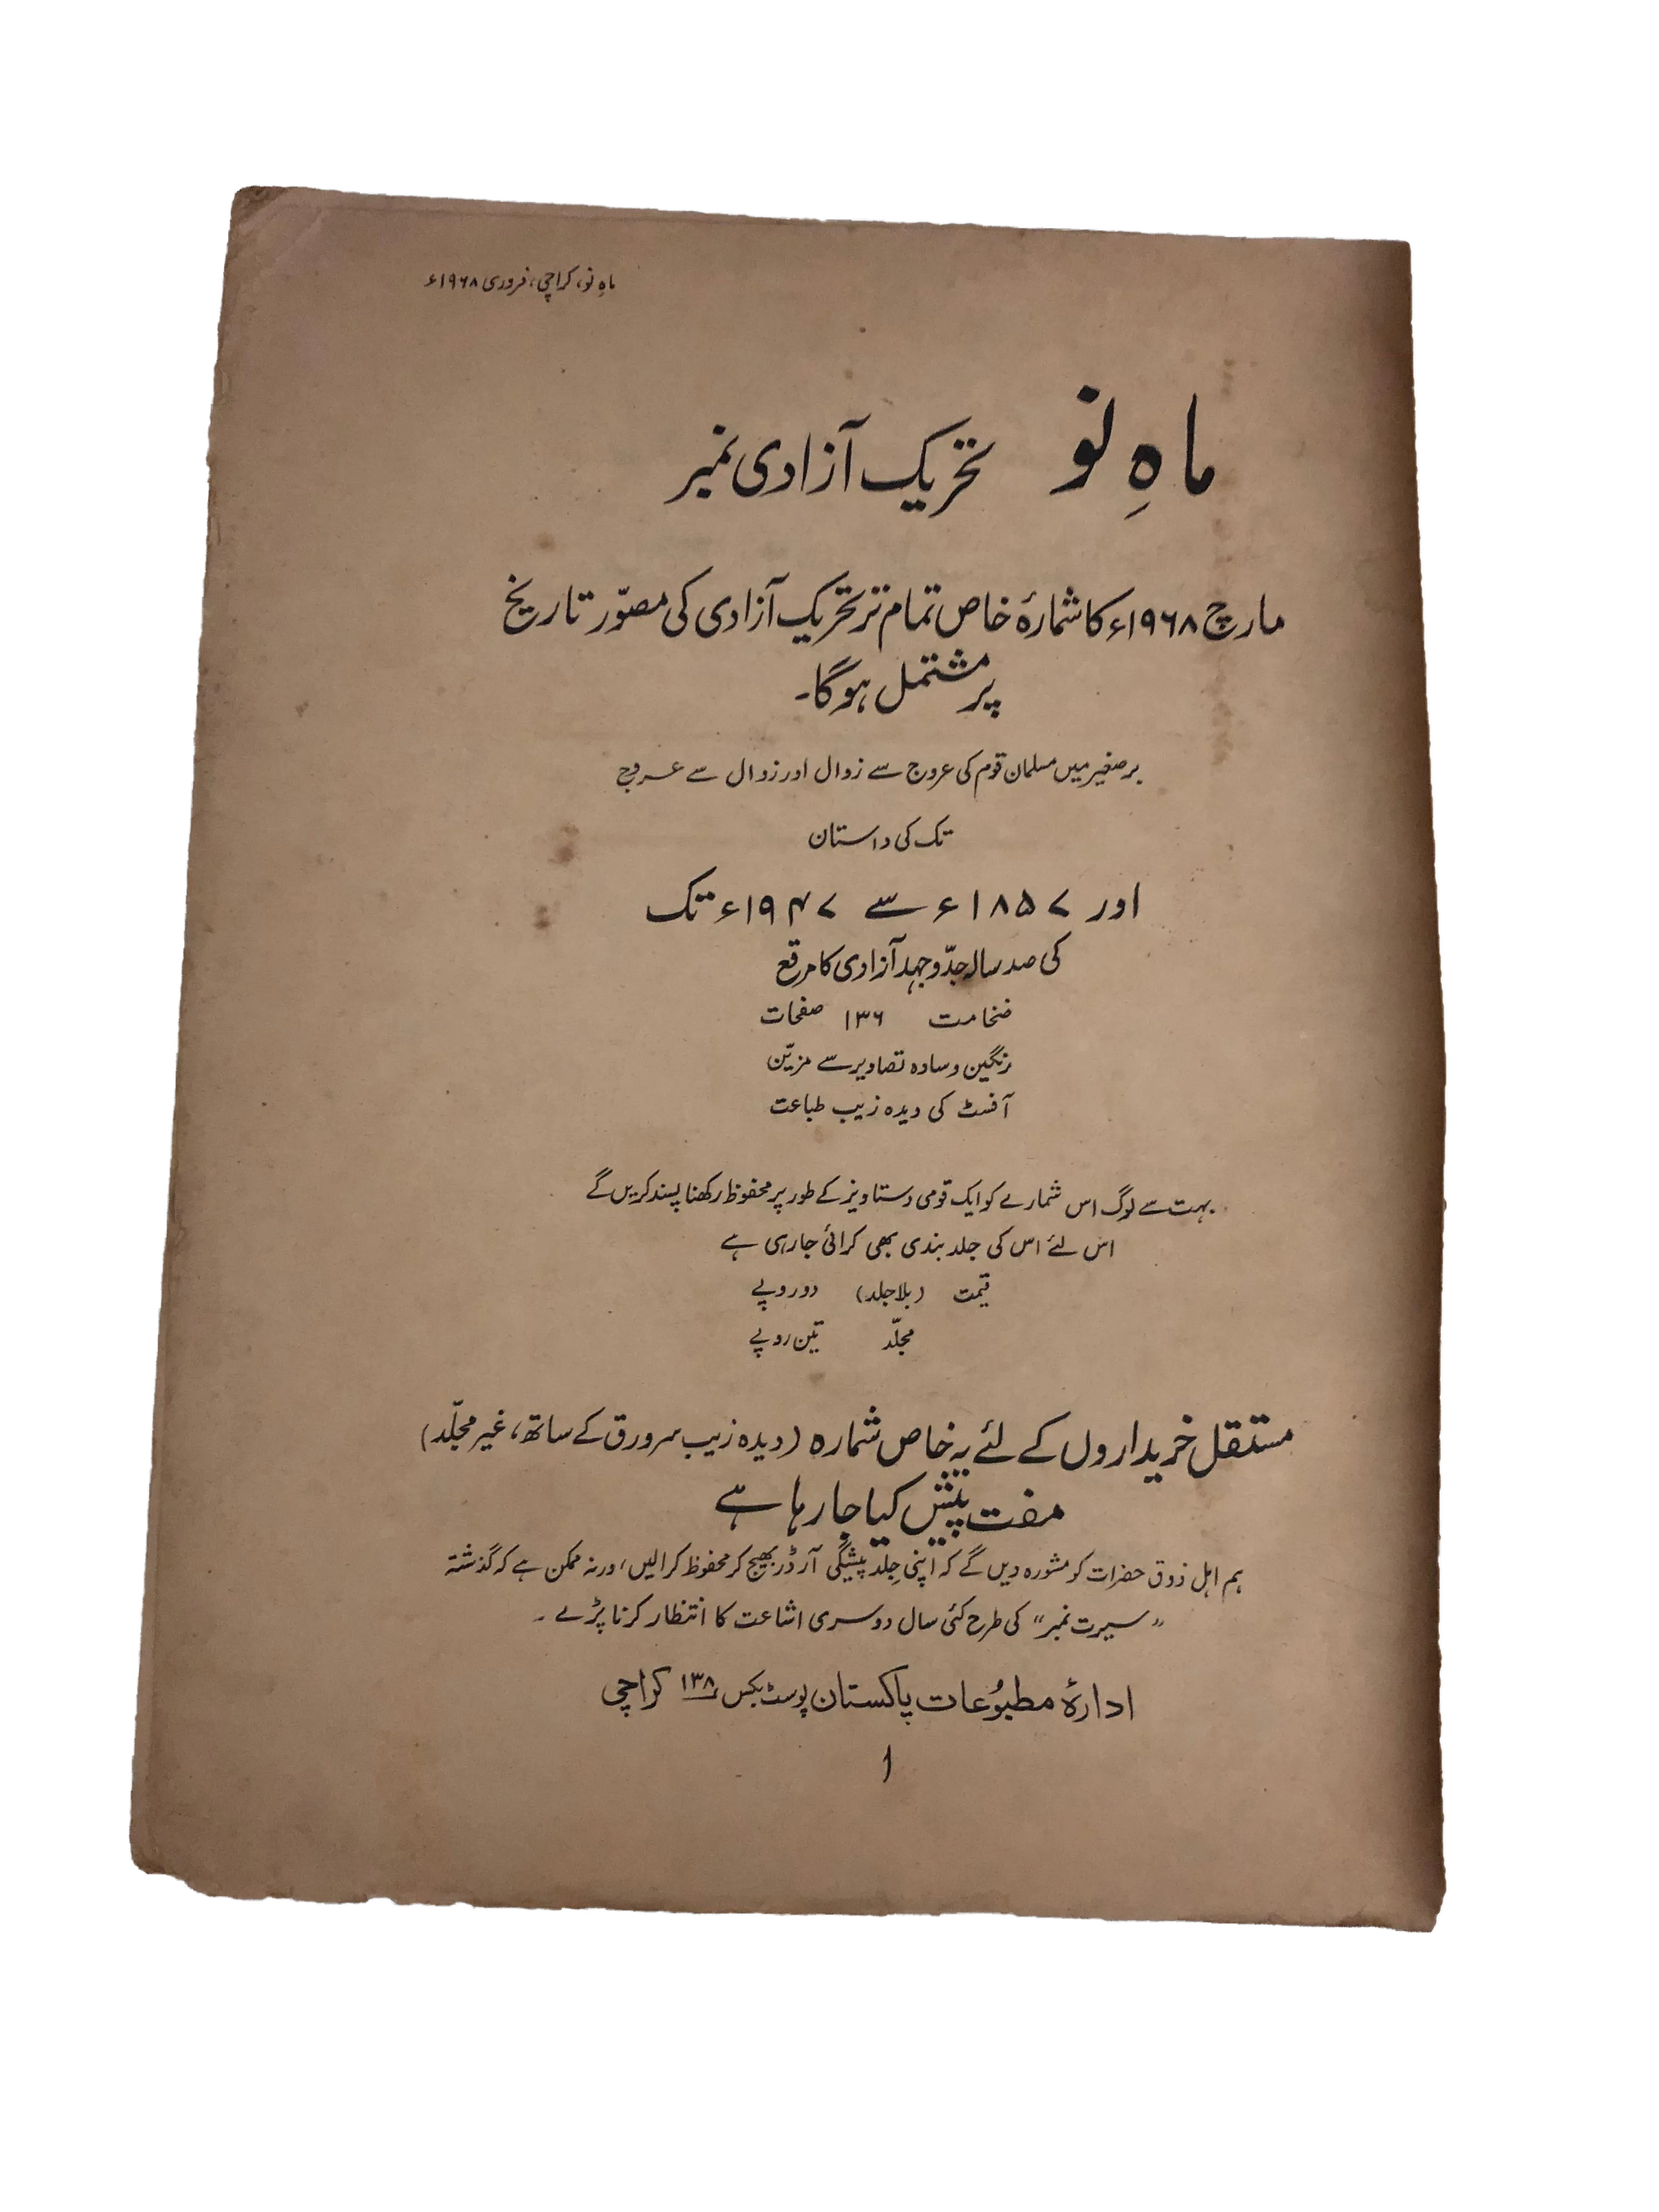 ماہِ نو، کراچی، فروری ۱۹۶۸ء
ماہِ نو تحریک آزادی نمبر
مارچ ۱۹۶۸ء کا شمارۂ خاص تمام تر تحریک آزادی کی مصوّر تاریخ
پر مشتمل ہوگا۔
برصغیر میں مسلمان قوم کی عروج سے زوال اور زوال سے عروج
تک کی داستان
اور ۱۸۵۷ء سے ۱۹۴۷ء تک
کی صد سالہ جدّوجہد آزادی کا مرقع
ضخامت ۱۳۶ صفحات
رنگین و سادہ تصاویر سے مزیّن
آفسٹ کی دیدہ زیب طباعت
بہت سے لوگ اس شمارے کو ایک قومی دستاویز کے طور پر محفوظ رکھنا پسند کریں گے
اس لئے اس کی جلد بندی بھی کرائی جارہی ہے
قیمت (بلا جلد) دو روپے
مجلّد تین روپے
مستقل خریداروں کے لئے یہ خاص شمارہ (دیدہ زیب سرورق کے ساتھ، غیر مجلّد)
مفت پیش کیا جا رہا ہے
ہم اہل ذوق حضرات کو مشورہ دیں گے کہ اپنی جِلد پیشگی آرڈر بھیج کر محفوظ کرالیں، ورنہ ممکن ہے کہ گذشتہ
"سیرت نمبر" کی طرح کئی سال دوسری اشاعت کا انتظار کرنا پڑے۔
ادارۂ مطبُوعات پاکستان پوسٹ بکس ۱۳۸ کراچی
۱